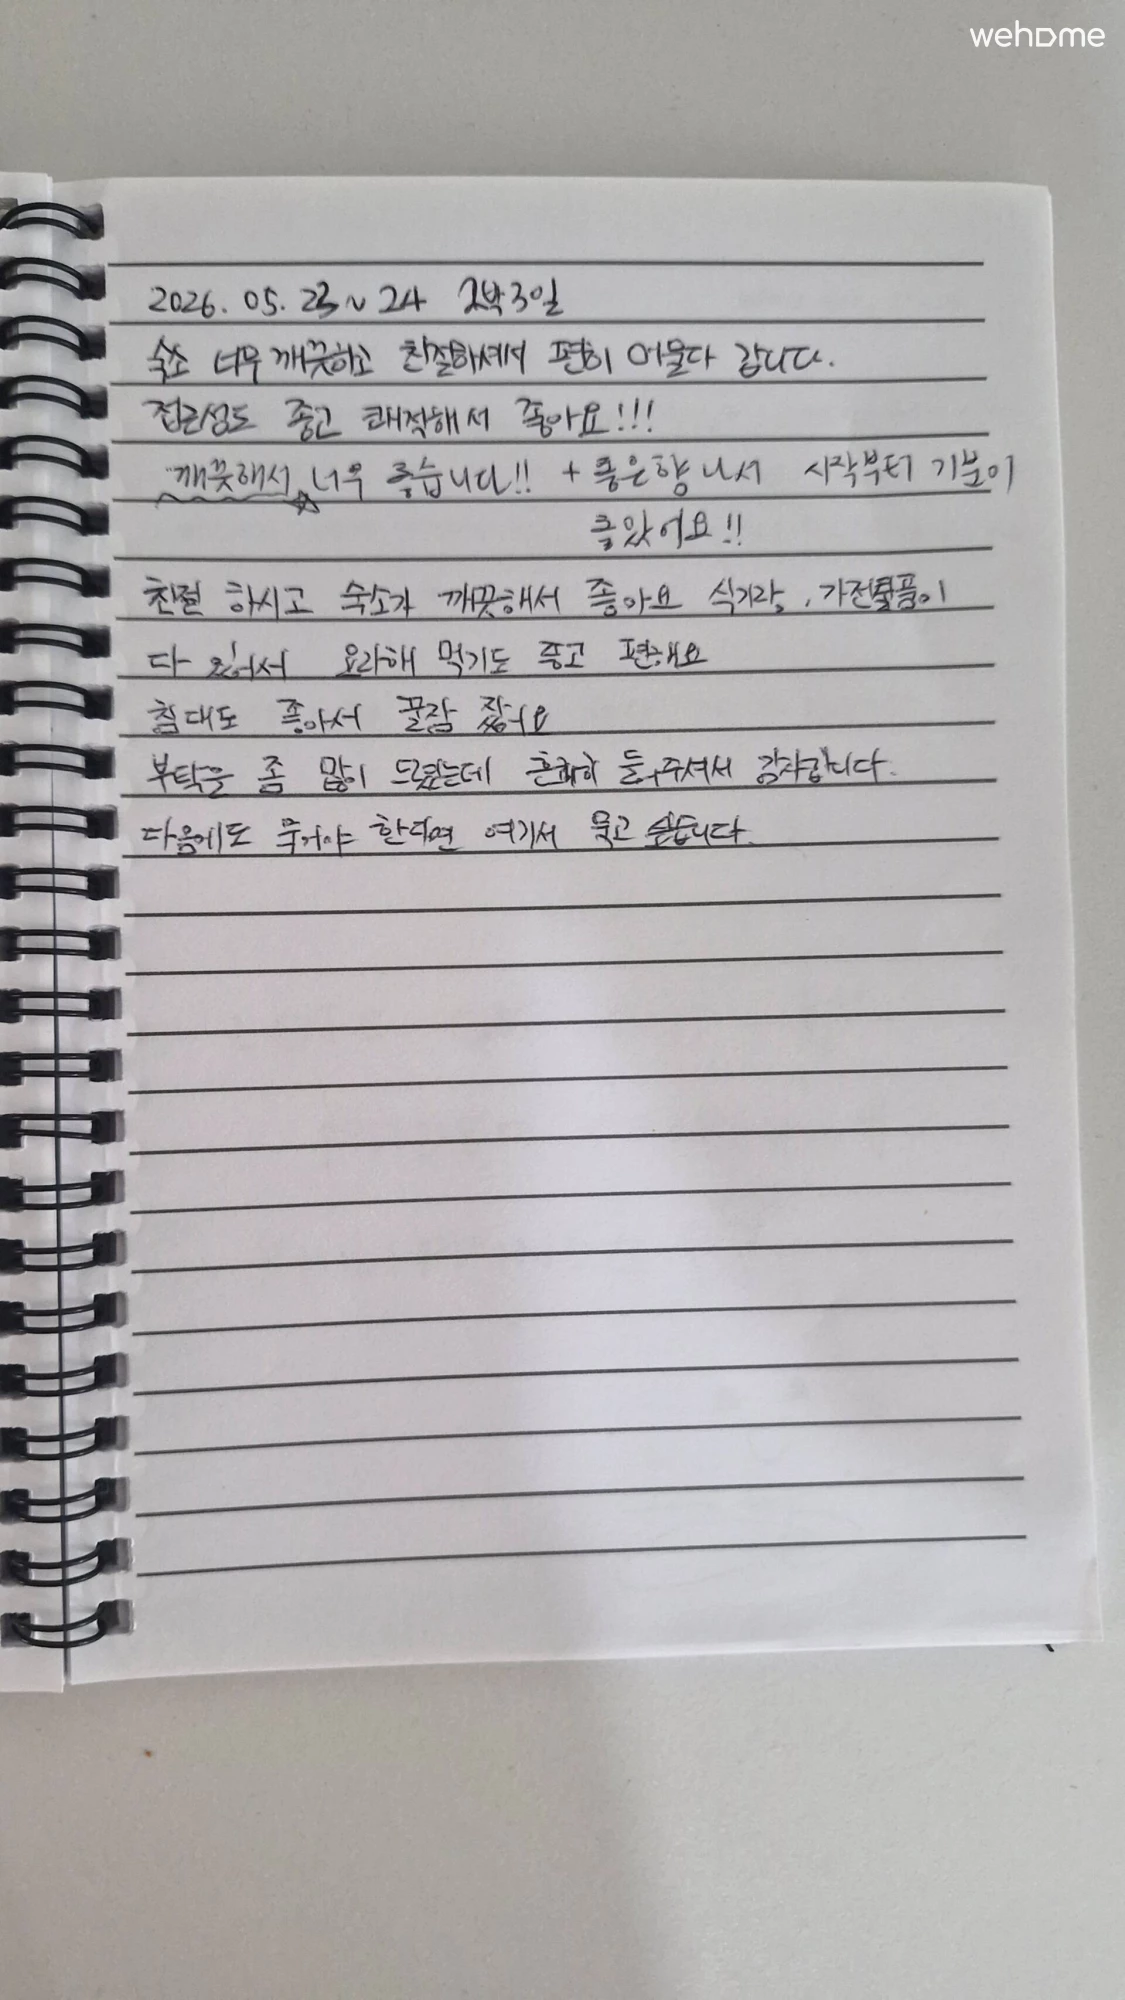 wehome
2026. 05. 23 ~ 24 2박3일
숙소 너무 깨끗하고 친절하셔서 편히 머물다 갑니다.
접근성도 좋고 쾌적해서 좋아요!!!
깨끗해서 너무 좋습니다!! + 좋은향 나서 시작부터 기분이
좋았어요!!
친절 하시고 숙소가 깨끗해서 좋아요 식기랑, 가전물품이
다 있어서 요리해 먹기도 좋고 편해요
침대도 좋아서 꿀잠 잤어요
부탁을 좀 많이 드렸는데 흔쾌히 들어주셔서 감사합니다.
다음에도 묵어야 한다면 여기서 묵고 싶습니다.